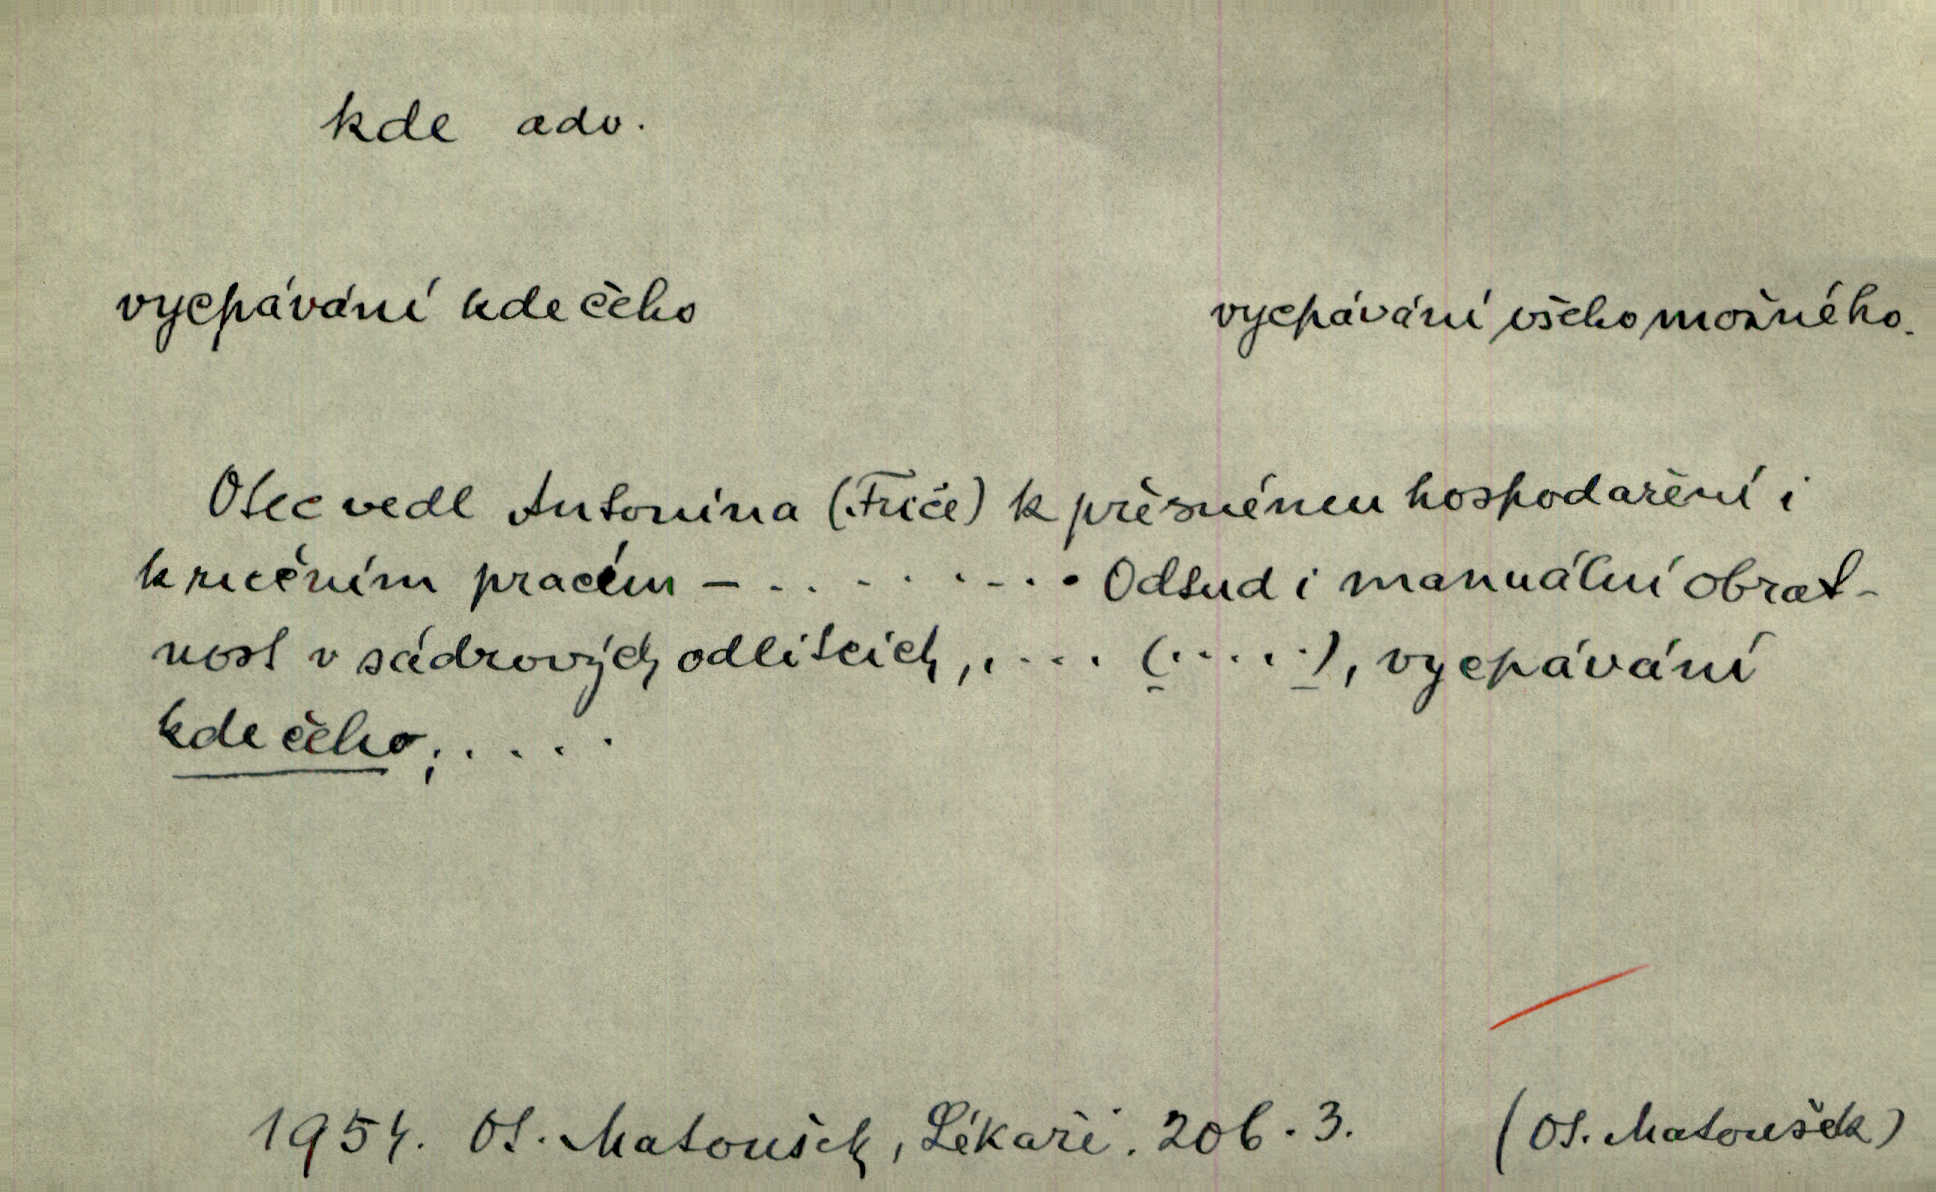 kde adv.
vycpávání kde čeho vycpávání všeho možného.
Otec vedl Antonína (Friče) k přesnému hospodaření i
k ručním pracem – . . . . . . . . Odtud i manuální obrat-
nost v sádrových odlitcích, . . . . (. . . . .), vycpávání
kde čeho; . . . .
1954. Ot. Matoušek, Lékaři. 206. 3. (Ot. Matoušek)